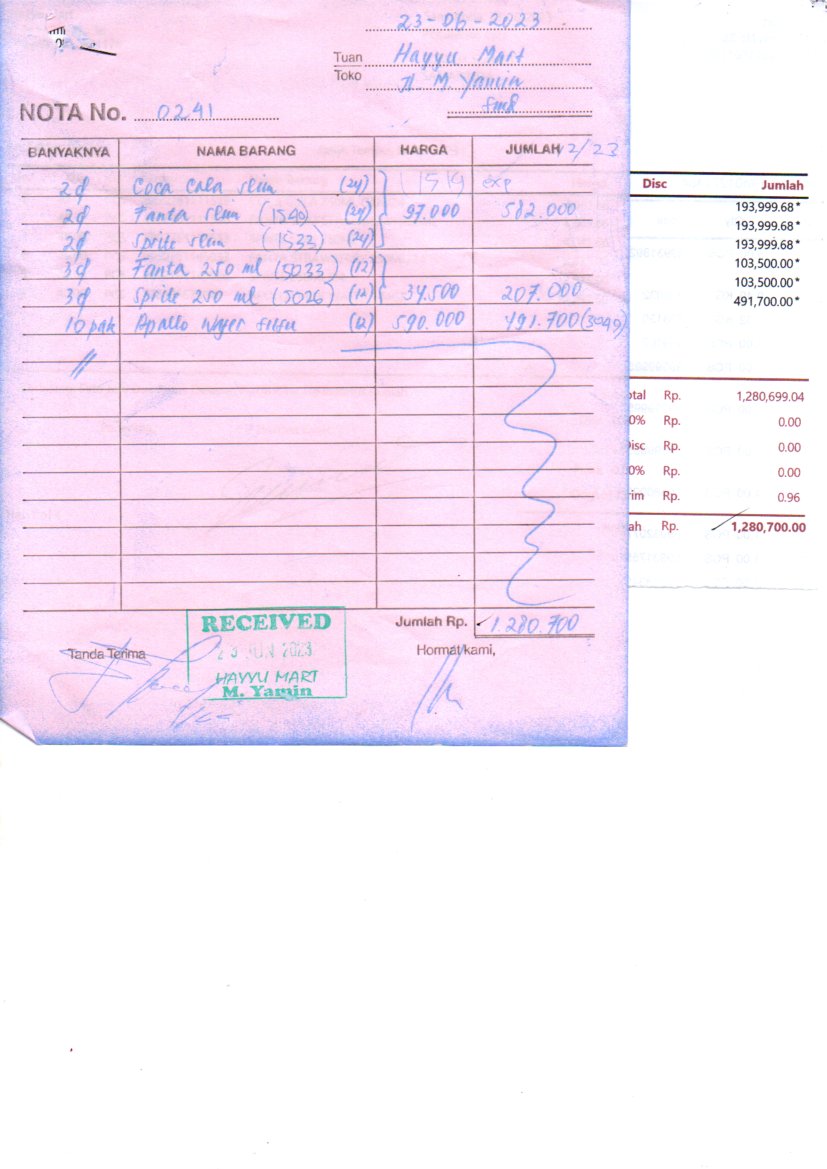 23-06-2023
Tuan Hayyu Mart
Toko Jl M. Yamin
smd
NOTA No. 0241
BANYAKNYA NAMA BARANG HARGA JUMLAH 12/23
2 d Coca Cola slim (24) (1519) exp
2 d Fanta slim (1540) (24) 97.000 582.000
2 d Sprite slim (1533) (24)
3 d Fanta 250 ml (5033) (12)
3 d Sprite 250 ml (5026) (12) 34.500 207.000
10 pak Apollo Wafer (12) 590.000 491.700 (3049)
Jumlah Rp. 1.280.700
Tanda Terima
Hormat kami,
RECEIVED
23 JUN 2023
HAYYU MART
M. Yamin
Disc Jumlah
193,999.68*
193,999.68*
193,999.68*
103,500.00*
103,500.00*
491,700.00*
otal Rp. 1,280,699.04
0% Rp. 0.00
isc Rp. 0.00
0% Rp. 0.00
rim Rp. 0.96
ah Rp. 1,280,700.00